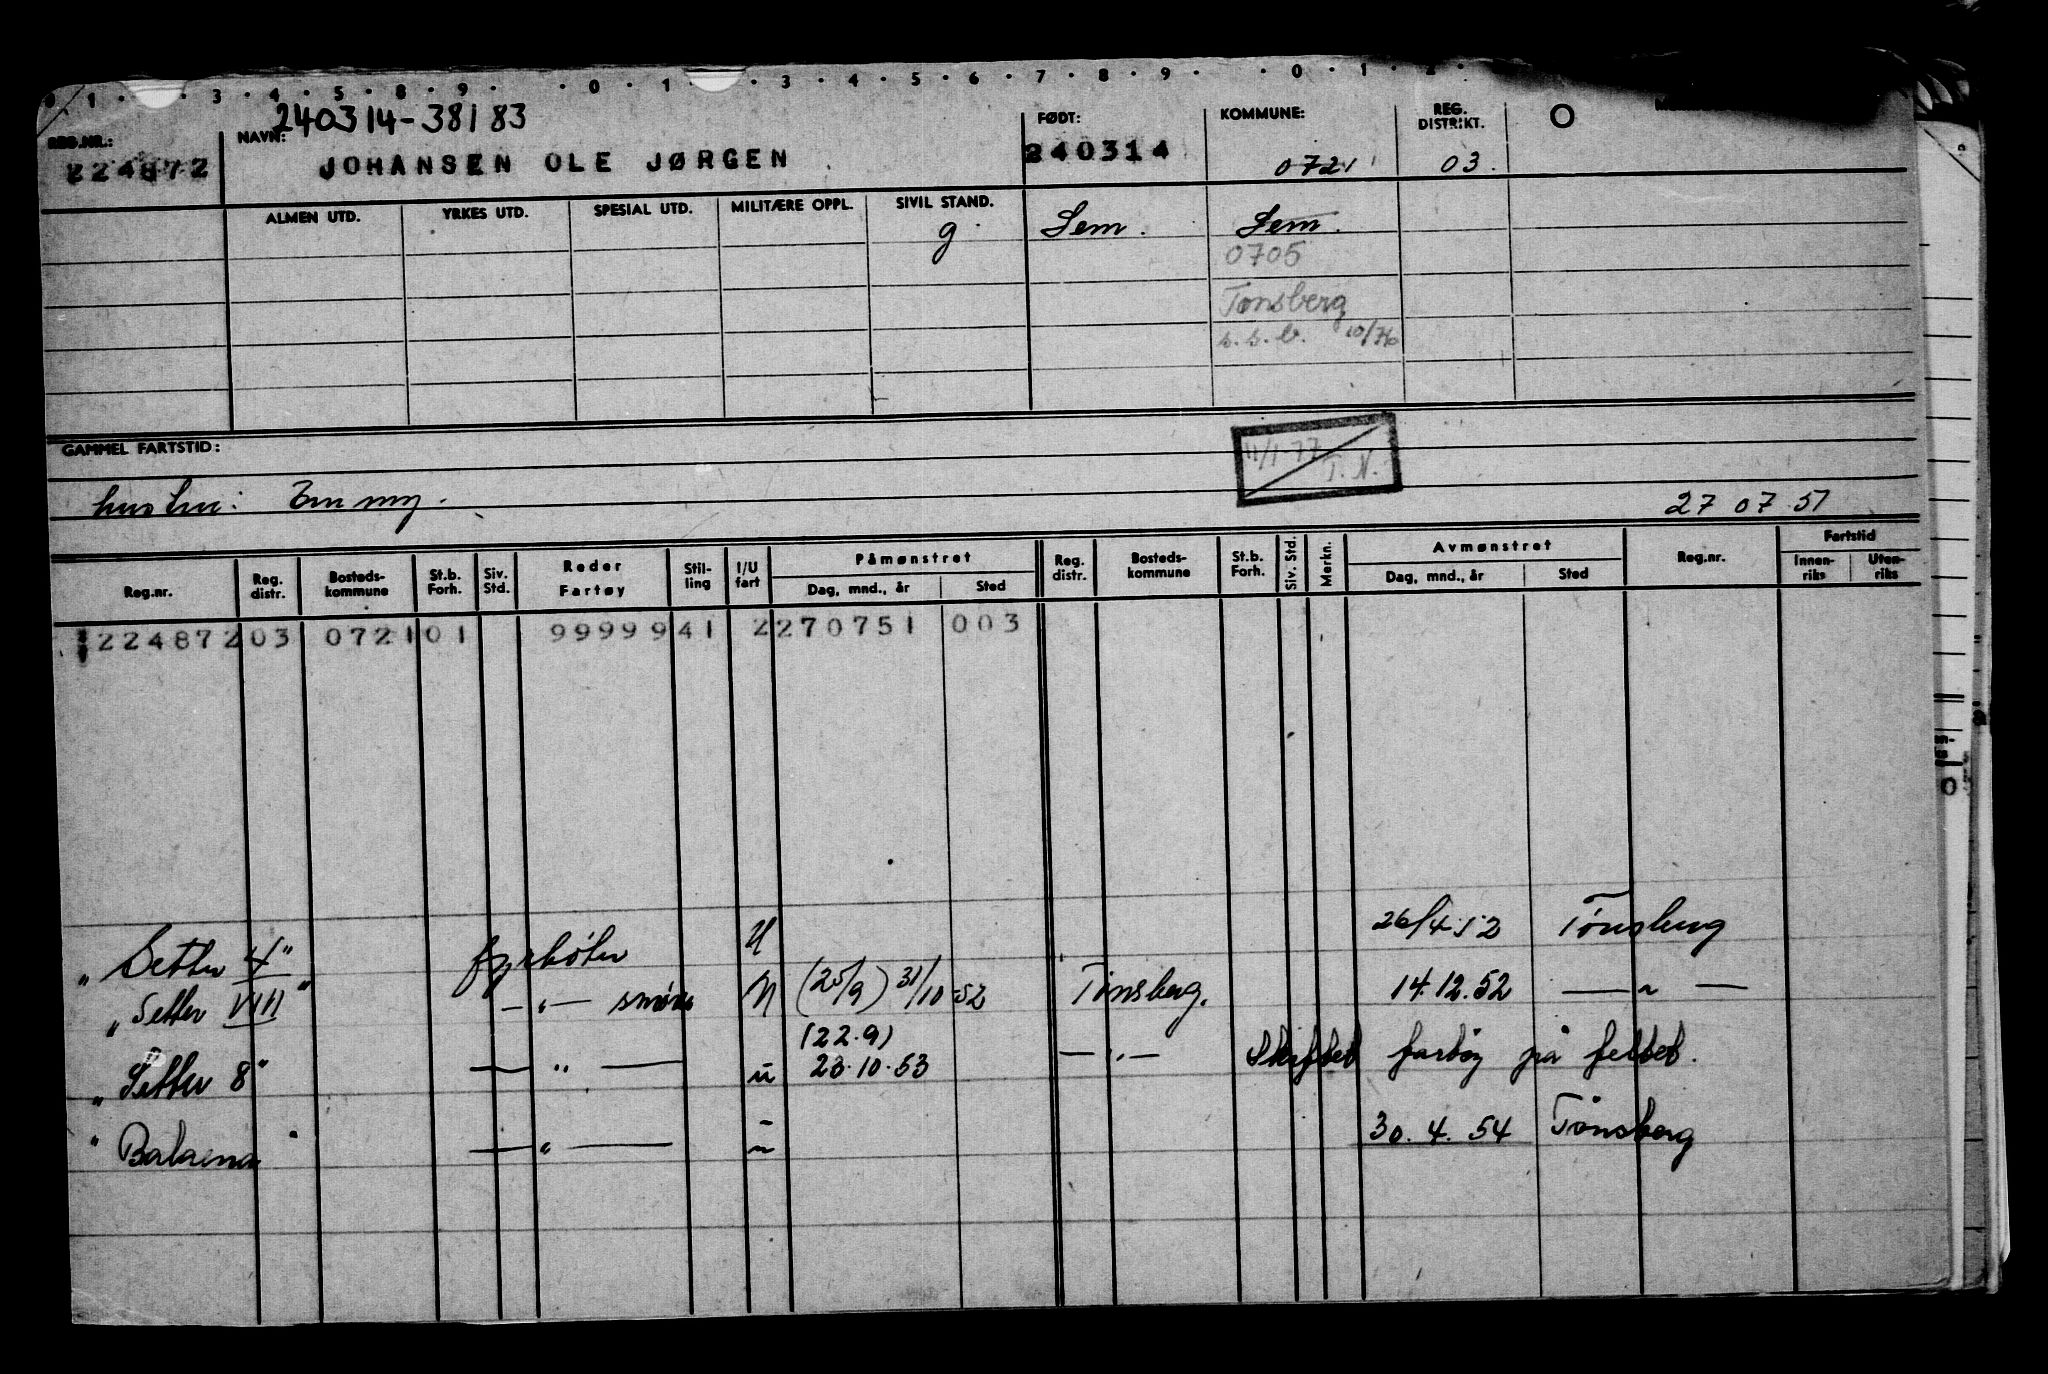 0 1 · 3 · 4 · 5 · 8 · 9 · · 0 · 1 · · 3 · 4 · 5 · 6 · 7 · 8 · 9 · · 0 · 1 · 2 ·
240314-38183
REG.NR.: NAVN: FØDT: KOMMUNE: REG. DISTRIKT. O
224872 JOHANSEN OLE JØRGEN 240314 0721 03.
ALMEN UTD. YRKES UTD. SPESIAL UTD. MILITÆRE OPPL. SIVIL STAND.
g Sem. Sem.
0705
Tønsberg
s.s.b. 10/76
GAMMEL FARTSTID:
11/1-77 T.N.
hustru: Emmy. 27 07 51
Reg.nr. Reg. distr. Bosteds-kommune St.b. Forh. Siv. Std. Reder Fartøy Stil-ling I/U fart Påmønstret Dag, mnd., år Sted Reg. distr. Bosteds-kommune St.b. Forh. Siv. Std. Merkn. Avmønstret Dag, mnd., år Sted Reg.nr. Fartstid Innen-riks Uten-riks
224872 03 0721 01 99999 41 2 270751 003
"Setter 4" fyrbøter U 26/4 52 Tønsberg
"Setter VIII" —"— smører U (25/9) 31/10-52 Tønsberg. 14.12.52 — " —
(22.9)
"Setter 8" — " — u 23.10.53 — " — Skiftet fartøy på feltet.
"Balaena" — " — u 30.4.54 Tønsberg